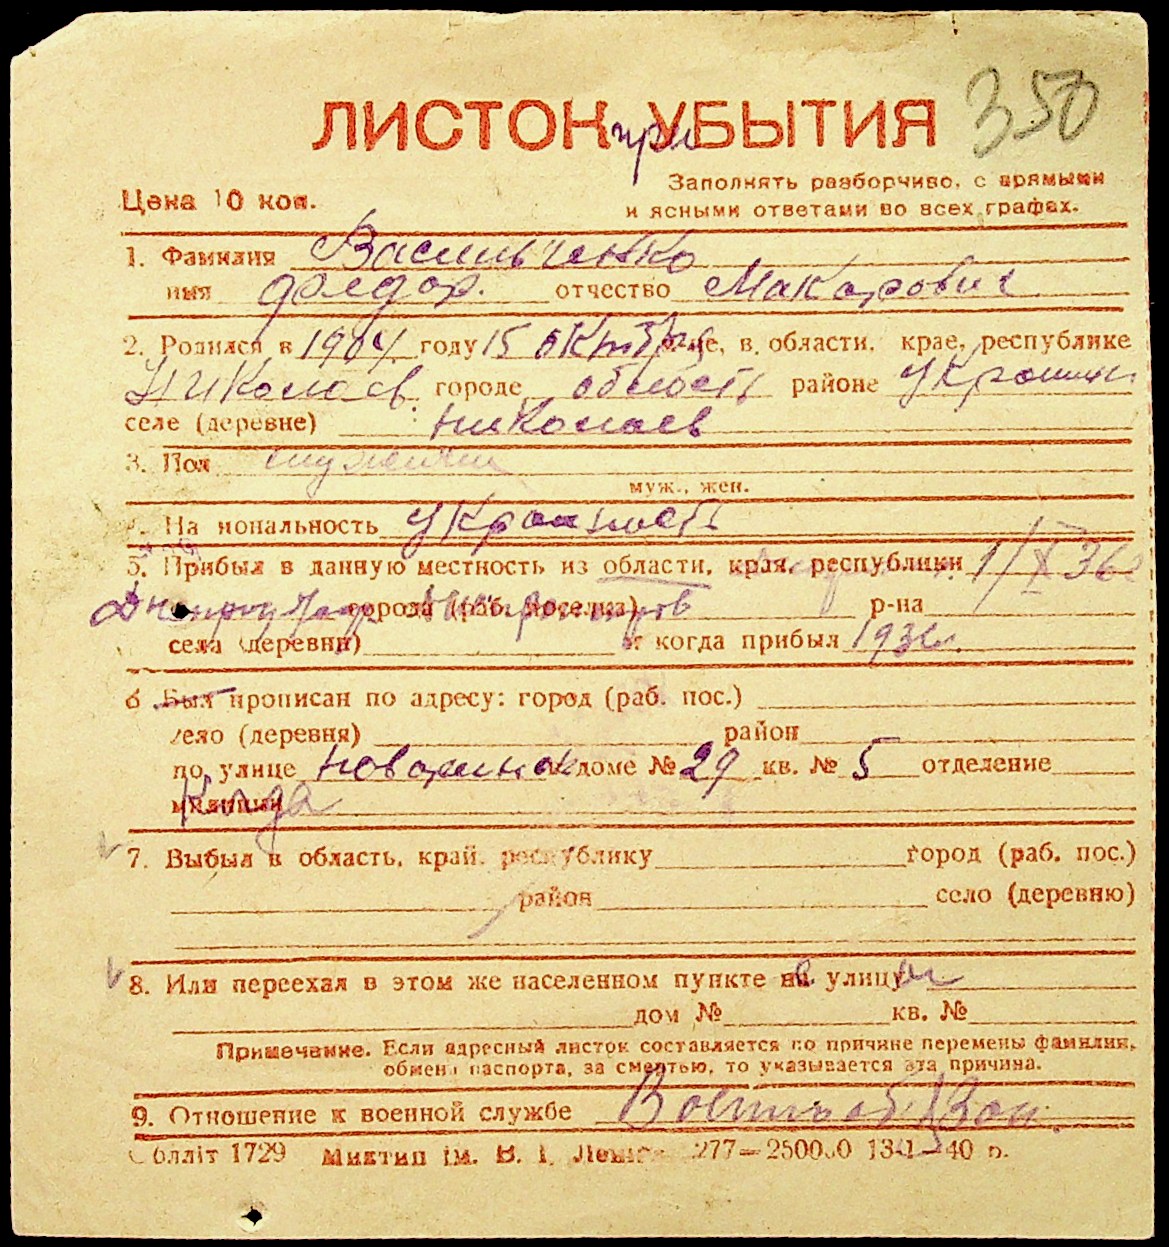 350
ЛИСТОК при УБЫТИЯ
Заполнять разборчиво, с прямыми
Цена 10 коп.
и ясными ответами во всех графах.
1. Фамилия Васильченко
имя Фгедор. отчество Макарович
2. Родился в 1904 году 15 октября це, в области, крае, республике
Николаев городе область районе Украины
селе (деревне) Николаев
3. Пол мужчин
муж., жен.
На иональность Украинсть
5. Прибыл в данную местность из области, края, республики 1/X 36г
города (раб. поселка) р-на
села (деревни) и когда прибыл 1936г.
6 Был прописан по адресу: город (раб. пос.)
село (деревня) район
по улице доме № 29 кв. № 5 отделение
милиции
7. Выбыл в область, край, республику город (раб. пос.)
район село (деревню)
8. Или переехал в этом же населенном пункте на улицу
дом № кв. №
Примечание. Если адресный листок составляется по причине перемены фамилии,
обмена паспорта, за смертью, то указывается эта причина.
9. Отношение к военной службе
Облліт 1729 Миктип ім. В. І. Леніна 277—250000 13-1-40 р.